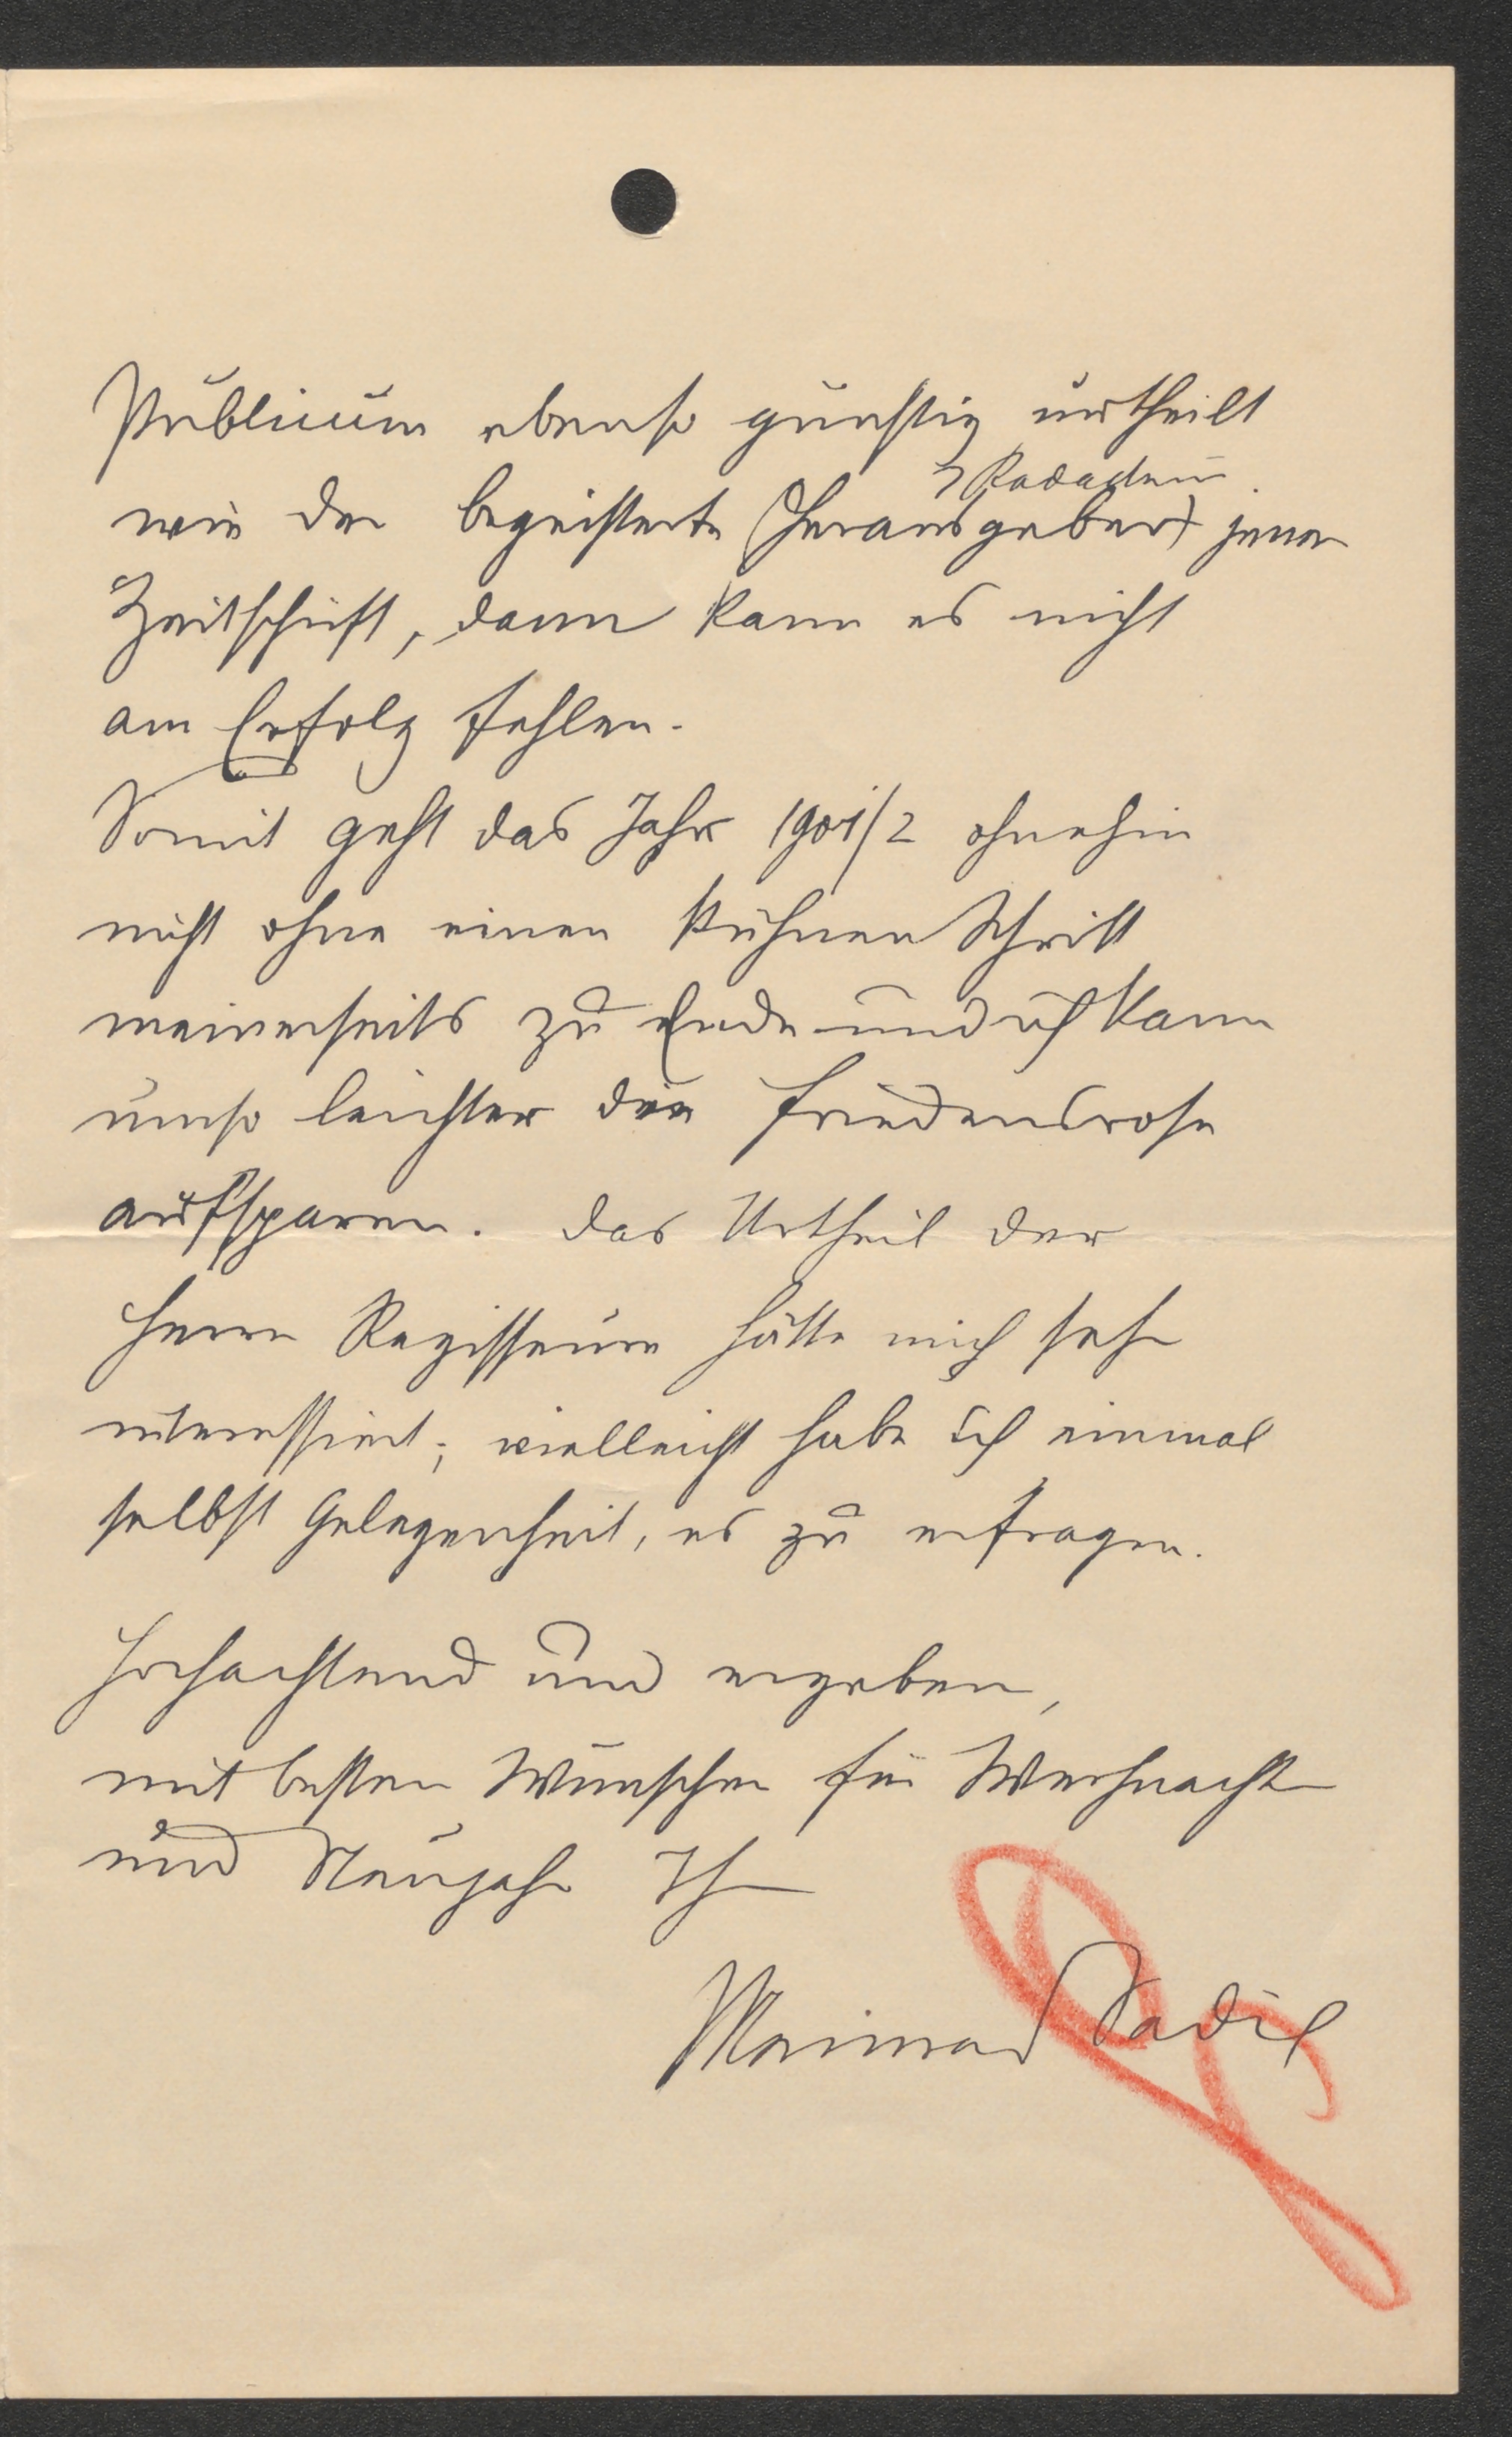 Publicum ebenso günstig urtheilt
Redacteur
wie der begeisterte (Herausgeber) jener
Zeitschrift, dann kann es nicht
am Erfolg fehlen.
Somit geht das Jahr 1901/2 ohnehin
nicht ohne einen kühnen Schritt
meinerseits zu Ende und ich kann
umso leichter die Friedensrose
aufsparen. Das Urtheil der
Herrn Regisseure hätte mich sehr
interessiert; vielleicht habe ich einmal
selbst Gelegenheit, es zu erfragen.
Hochachtend und ergeben,
mit besten Wünschen für Weihnacht
und Neujahr Ihr
Meinrad Sadil